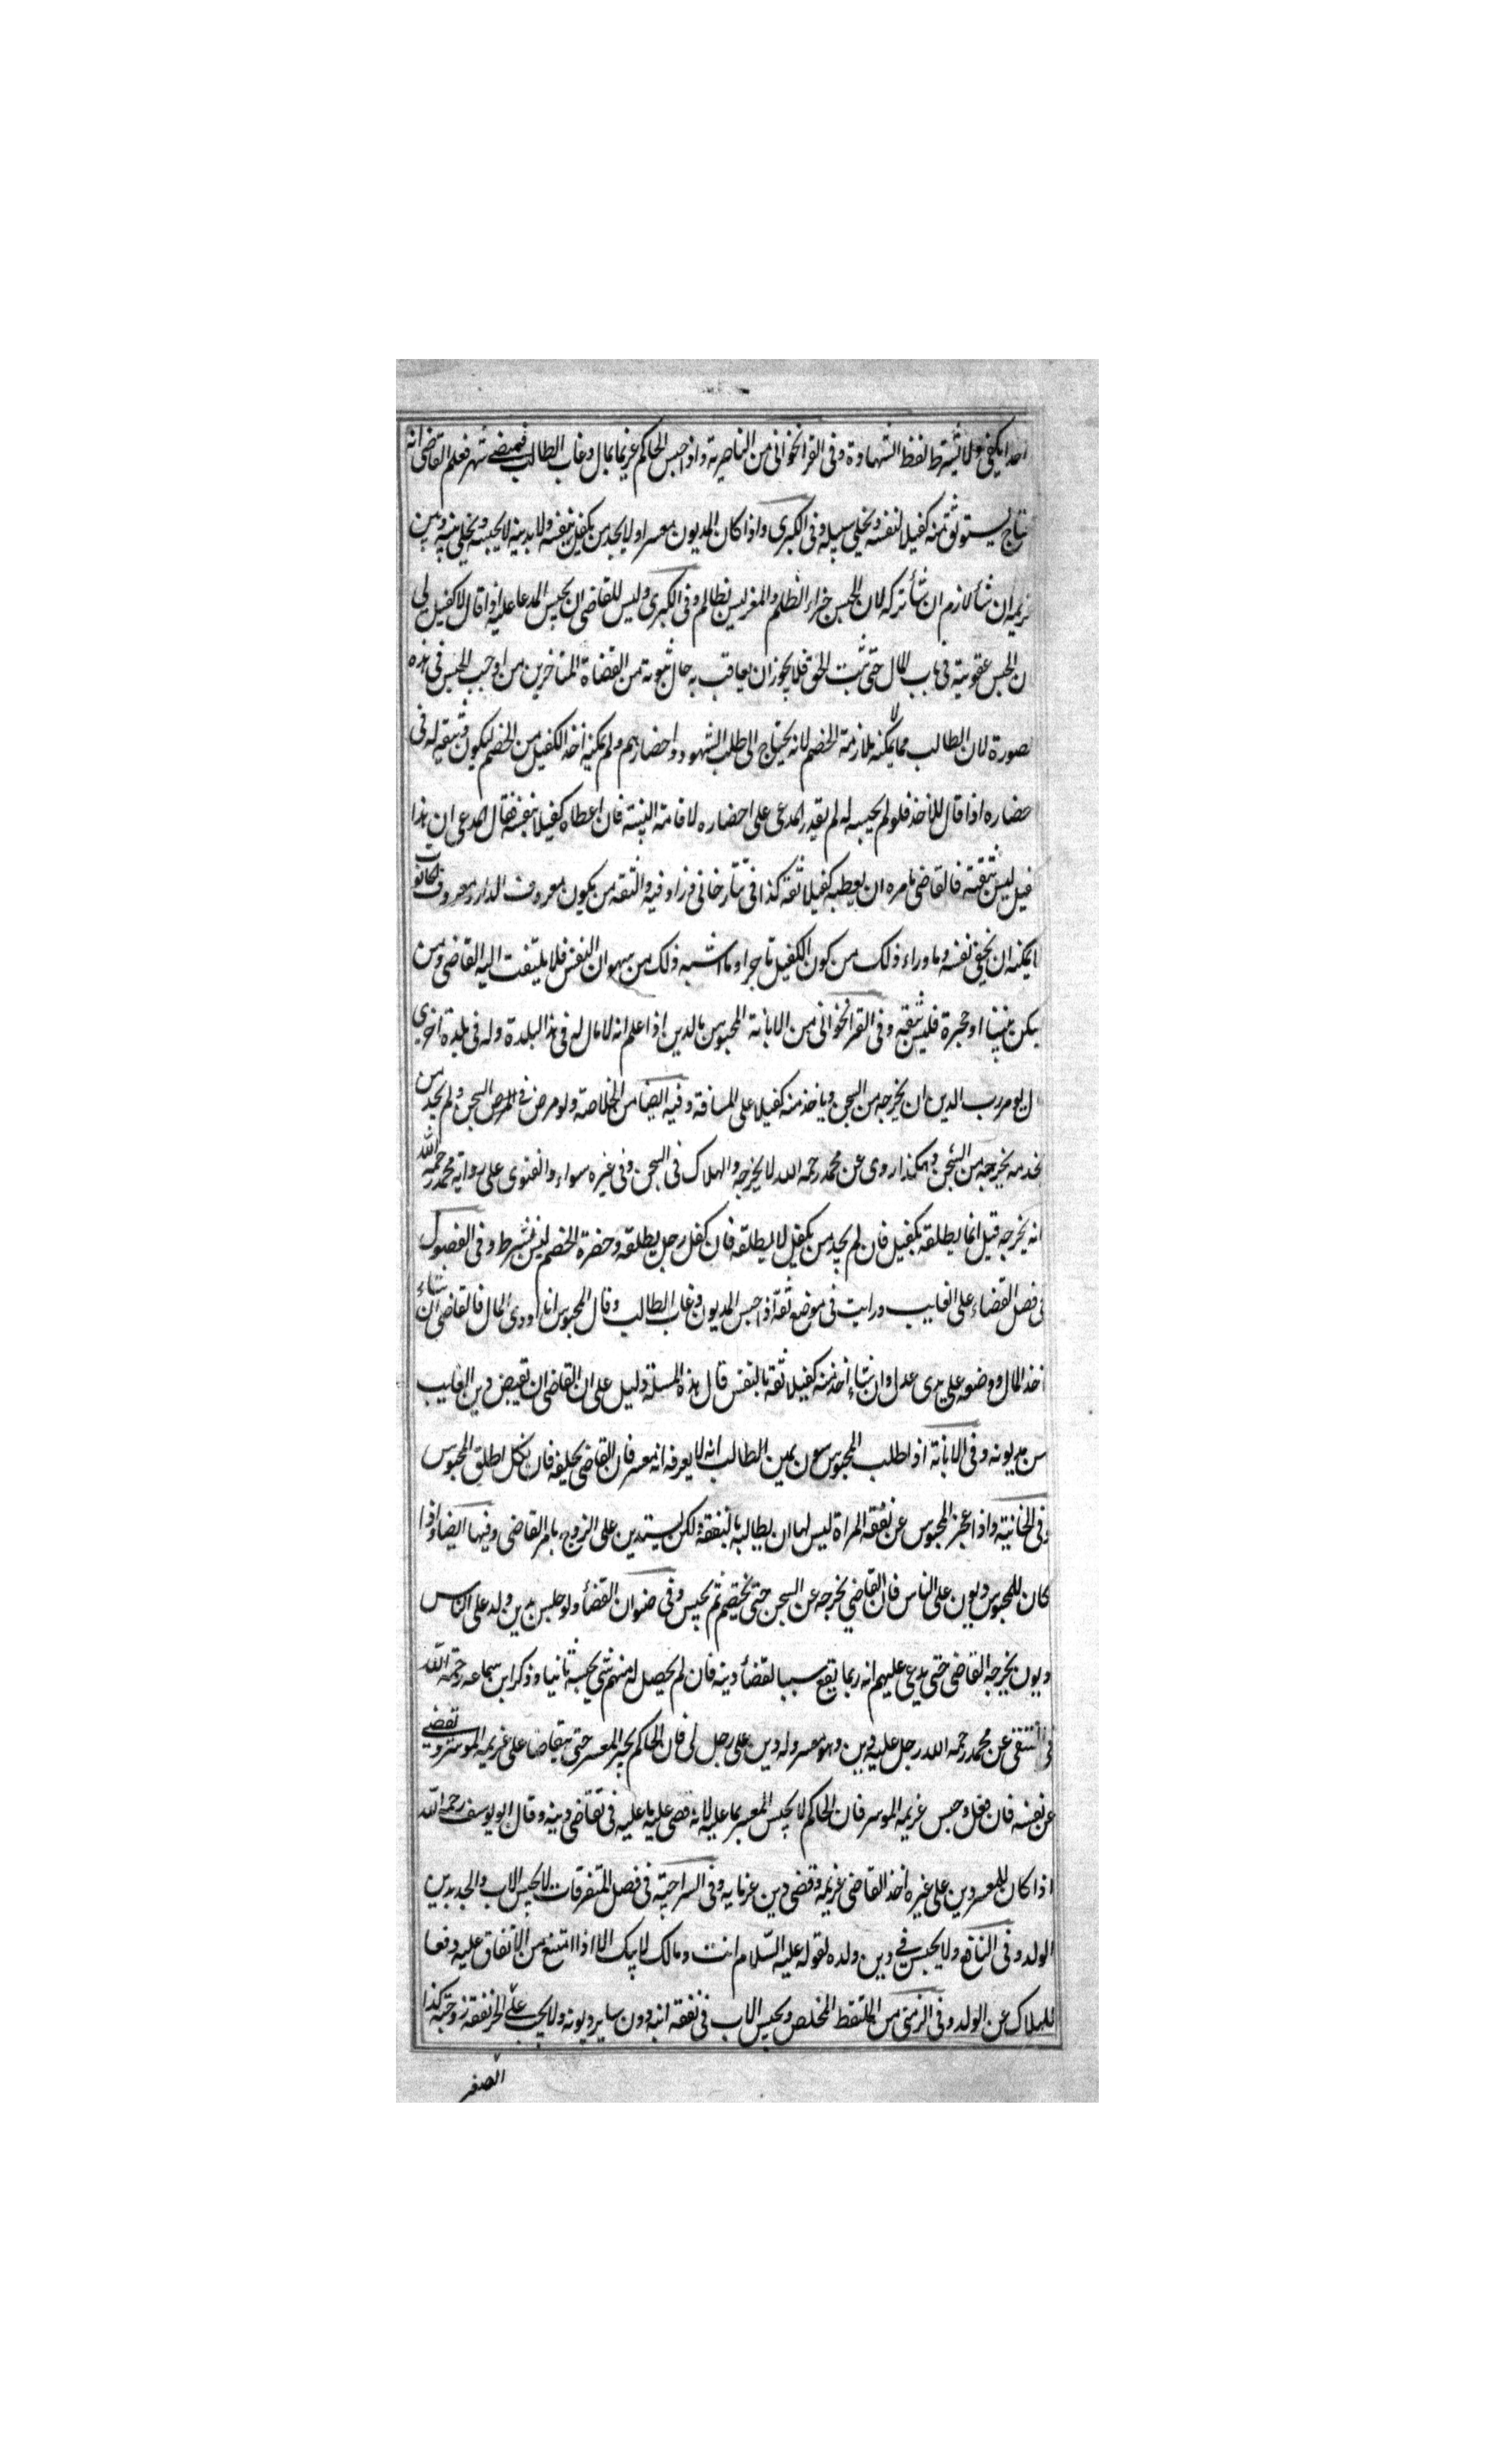 احدا يكفي ولا تشترط لفظ الشهادة وفى القراخوانى من الناصرية واذا حبس الحاكم غريما بمال وغاب الطالب فمضى شهر فعلم القاضى انه
يستوثق منه كفيلا لنفسه ويخلى سبيله وفى الكبرى واذا كان المديون معسرا ولا يجد من يكفل بنفسه ولا بدينه لا يحبسه ويخلى بينه وبين
ان شأ لازم ان شأ تركه لان الحبس جزاء الظلم والمفلس ليس بظالم وفى الكبرى وليس للقاضى ان يحبس المدعا عليه اذا قال لا كفيل لى
ن الحبس عقوبة فى باب المال حتى ثبت الحق فلا يجوز ان يعاقب به حال ثبوته من القضاة المتاخرين من اوجب الحبس فى هذه
لصورة لان الطالب مما لا يمكنه ملازمة الخصم لانه يحتاج الى طلب الشهود واحضارهم ولم يمكنه اخذ الكفيل من الخصم ليكون وثيقة له فى
حضاره اذا قال للاخذ فلو لم يحبسه له لم يقدر المدعى على احضاره لاقامة البينة فان اعطاه كفيلا بنفسه فقال المدعى ان هذا
فيل ليس بثقة فالقاضى يامره ان يعطيه كفيلا ثقة كذا فى تتارخانى وزاد فيه والثقة من يكون معروف الدار ومعروف الحانوت
لا يمكنه ان يخفى نفسه وما وراء ذلك من كون الكفيل تاجرا وما اشبه ذلك من سهوان النفس فلا يلتفت اليه القاضى ومن
يكن بيتا او حجرة فليس بثقة وفى القراخوانى من الابانة المحبوس بالدين اذا علم انه لا مال له فى هذا البلدة وله فى بلدة اخرى
ل يومر رب الدين ان يخرجه من السجن وياخذ منه كفيلا على المسافة وفيه ايضا من الخلاصة ولو مرض فى السجن ولم يجد من
يخدمه يخرجه من السجن وهكذا روى عن محمد رحمه الله لا يخرجه والهلاك فى السجن وفى غيره سواء والفتوى على رواية محمد رحمه الله
انه يخرجه قيل انما يطلقه بكفيل فان لم يجد من يكفيل لا يطلقه فان كفل رجل يطلقه وحضرة الخصم ليس بشرط وفى الفصول
فى فصل القضاء على الغايب ورايت فى موضع ثقة اذا حبس المديون وغاب الطالب وقال المحبوس انا اودى المال فالقاضى ان شاء
اخذ المال ووضعه على يدى عدل وان شاء اخذ منه كفيلا ثقة بالنفس قال هذه المسئلة دليل على ان القاضى ان يقبض دين الغايب
من مديونه وفى الابانة اذا طلب المحبوس يمين الطالب انه لا يعرفه انه معسر فان القاضى يحلفه فان نكل اطلق المحبوس
وفى الخانية واذا عجز المحبوس عن نفقة المراة ليس لها ان يطالبه بالنفقة ولكن يستدين على الزوج بامر القاضى وفيها ايضا واذا
كان للمحبوس ديون على الناس فان القاضي يخرجه عن السجن حتى يخصم ثم يحبس وفى صنوان القضأ ولو حبس بدين وله على الناس
ديون يخرجه القاضى حتى يدعى عليهم انه ربما يقع سببا لقضأ دينه فان لم يحصل له منهم شى يحبسه ثانيا وذكر ابن سماعه رحمه الله
فى المنتقى عن محمد رحمه الله رجل عليه دين وهو معسر وله دين على رجل لى فان الحاكم يجبر المعسر حتى يتقاضا على غريمه الموسر ويقضى
عن نفسه فان فعل وحبس غريمه الموسر فان الحاكم لا يحبس المعسر بما عليه لانه قضى عليه ما عليه فى تقاضى دينه وقال ابو يوسف رحمه الله
اذا كان للمعسر دين على غيره اخذ القاضى غريمه وقضى دين غرمايه وفى السراجية فى فصل المتفرقات لا يحبس الاب والجد بدين
الولد وفى النافع ولا يحبس فى دين ولده لقوله عليه السلام انت ومالك لابيك الا اذا امتنع من الانفاق عليه دفعا
للهلاك عن الولد وفى الزمنى من الملتقط المخلص ويحبس الاب فى نفقة ابنه دون ساير ديونه ولا يجب على الحر نفقة زوجته كذا
الصغير